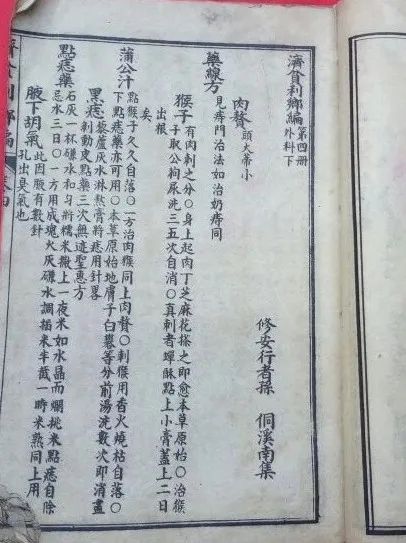 濟貧利鄉編 第四册 外科下
修安行者孫 侗溪南集
肉贅 頭大蒂小
藥線方
見痔門治法如治奶痔同
猴子 有肉刺之分〇身上起肉丁芝麻花搽之即愈本草原始〇治猴
子取公狗尿洗三五次自消〇真刺者蟬酥點上小膏蓋上二日
出根
矣
蒲公汁 點猴子久久自落〇一方治肉猴同上肉贅〇刺猴用香火燒枯自落〇
下點痣藥亦可用〇本草原始地膚子白礬等分煎湯洗數次即消盡
黑痣 藜蘆灰水淋熬膏將痣用針畧
剝動皮點藥三次無迹聖惠方
點痣藥 石灰一杯礆水和勻將糯米撒上一夜米如水晶而爛挑米點痣自除
忌水三日〇一方用成塊火灰礆水調插米半截一時米熟同上用
腋下胡氣 此因腋有數針
孔出臭氣也
濟貧利鄉編 卷四